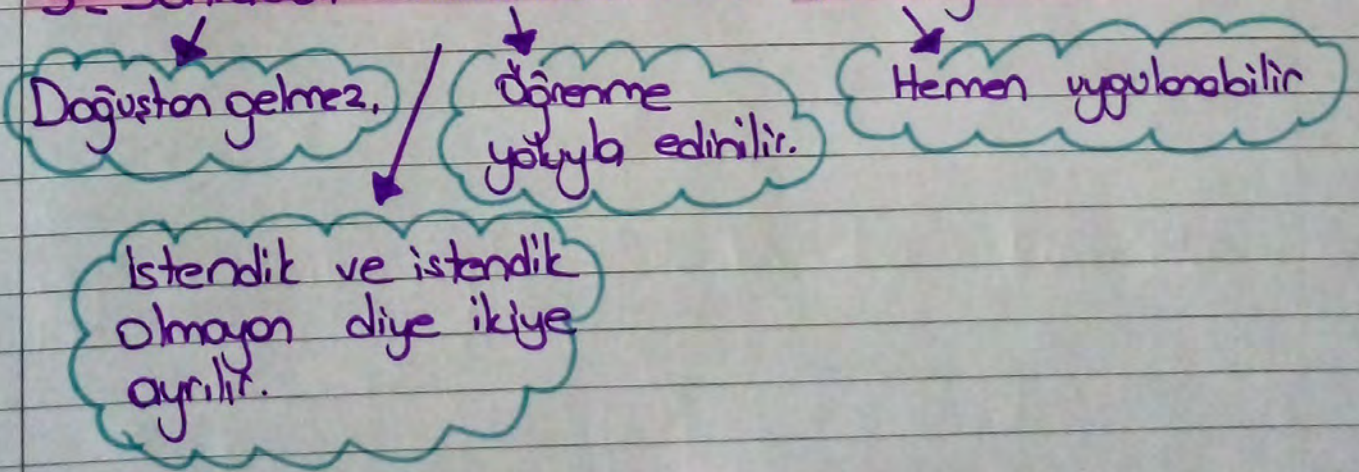 Doğuştan gelmez.
Öğrenme
yoluyla edinilir.
Hemen uygulanabilir
İstendik ve istendik
olmayan diye ikiye
ayrılır.